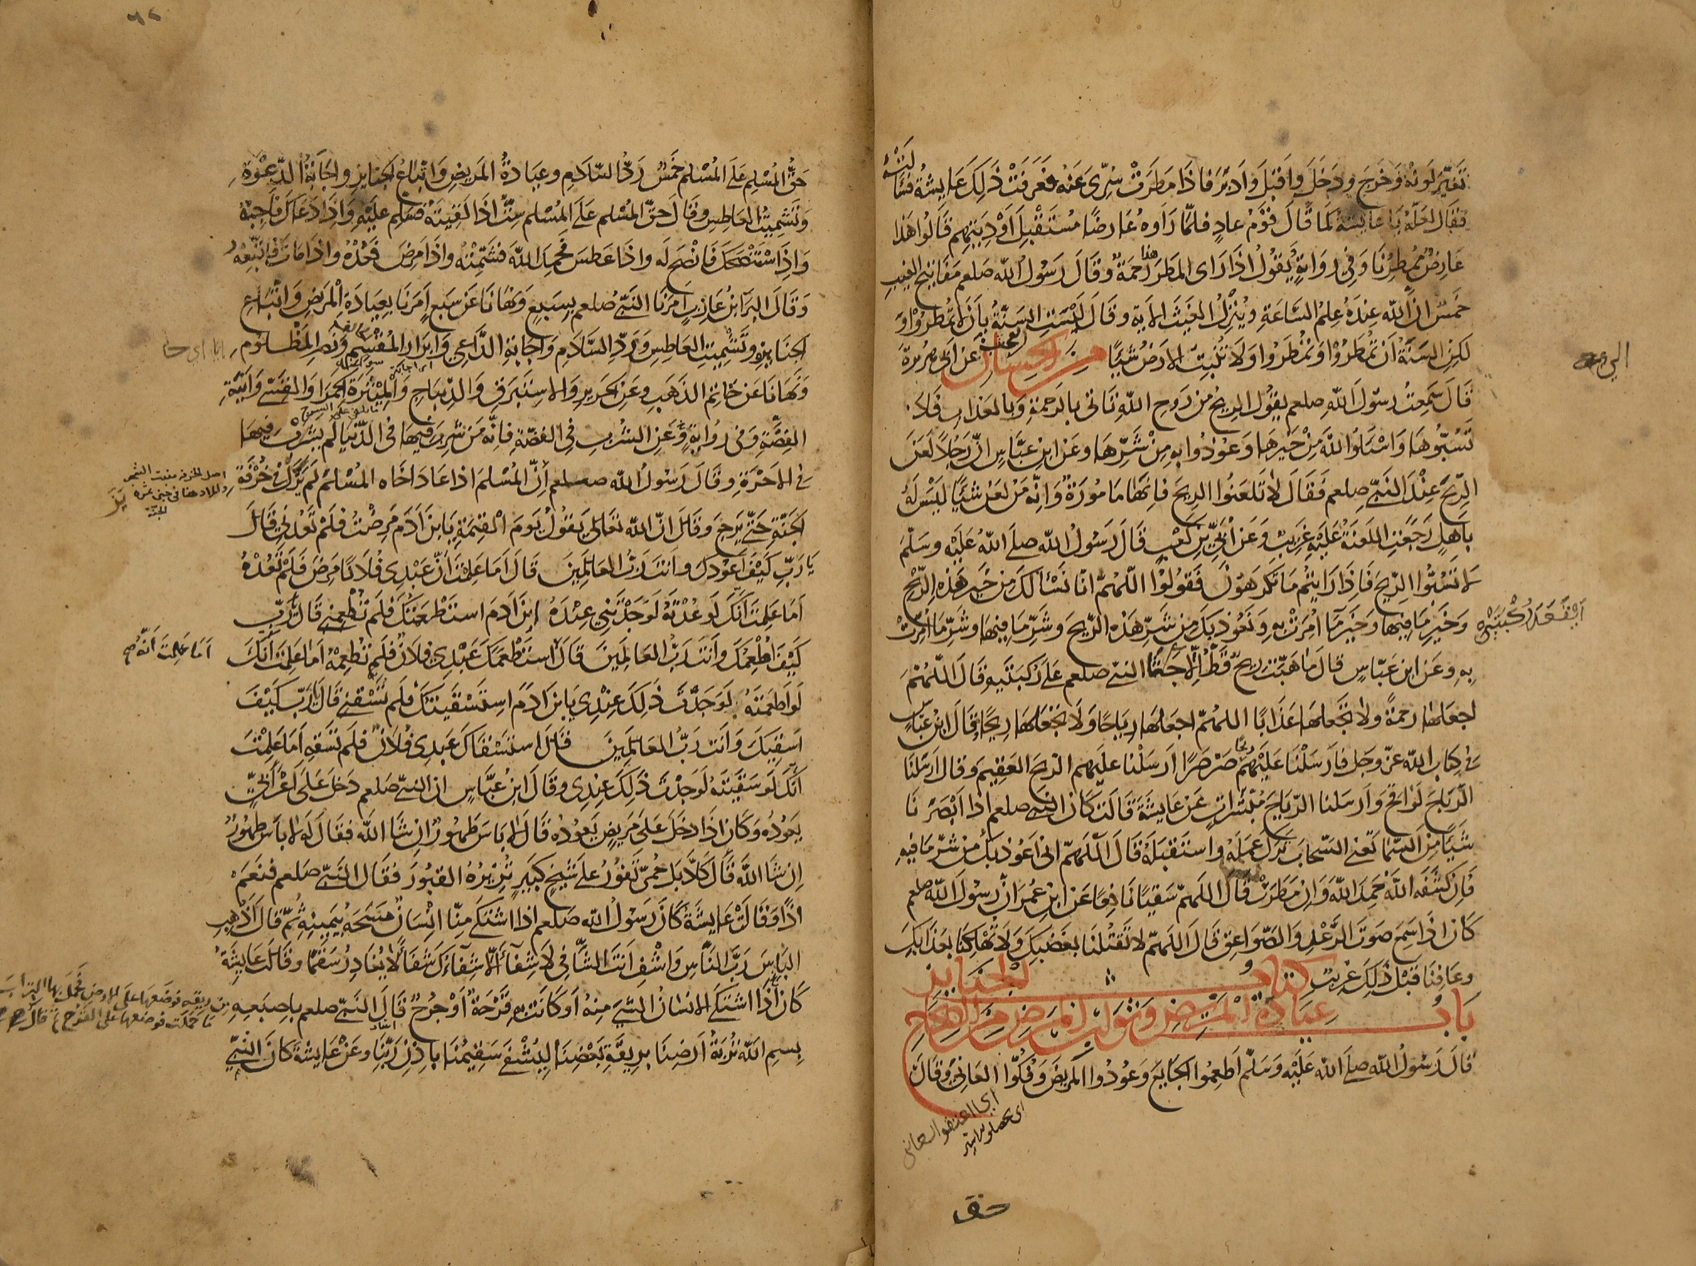 تغيّر لونه وخرج ودخل واقبل وادبر فاذا مطرت سرّى عنه فعرفت ذلك عايشة فسالته
فقال لعلّه يا عايشة كما قال قوم عاد فلمّا راوه عارضًا مستقبل اوديتهم قالوا هذا
عارض ممطرنا وفي رواية يقول اذا راى المطر رحمة وقال رسول الله صلعم مفاتيح الغيب
خمس انّ الله عنده علم السّاعة وينزّل الغيث الاية وقال ليست السنة بان لا تمطروا و
لكن السنة ان تمطروا وتمطروا ولا تنبت الارض شيئًا من الحسان عن ابي هريرة
قال سمعت رسول الله صلعم يقول الريح من روح الله تاتي بالرحمة وبالعذاب فلا
تسبّوها واسئلوا الله من خيرها وعوذوا به من شرّها وعن ابن عبّاس انّ رجلاً لعن
الريح عند النبيّ صلعم فقال لا تلعنوا الريح فانها مامورة وانّه من لعن شيئًا ليس له
باهل رجعت اللعنة عليه غريب وعن ابيّ بن كعب قال رسول الله صلى الله عليه وسلم
لا تسبّوا الريح فاذا رايتم ما تكرهون فقولوا اللّهمّ انا نسألك من خير هذه الريح
وخير ما فيها وخير ما امرت به ونعوذ بك من شرّ هذه الريح وشرّ ما فيها وشرّ ما امرت
به وعن ابن عبّاس قال ما هبّت ريح قطّ الّا جثا النبي صلعم على ركبتيه قال اللّهمّ
اجعلها رحمةً ولا تجعلها عذابًا اللهمّ اجعلها رياحا ولا تجعلها ريحًا قال ابن عباس
في كتاب الله عزّ وجل فارسلنا عليهم ريحا صرصرًا ارسلنا عليهم الريح العقيم وقال ارسلنا
الرّياح لواقح وارسلنا الرّياح مبشّرات عن عايشة قالت كان النبي صلعم اذا ابصرنا
شيئًا من السّما تعني السّحاب ترك عمله واستقبله قال اللّهمّ اني اعوذ بك من شرّ ما فيه
فان كشفه الله حمد الله وان مطرت قال اللهمّ سقيًا نافعًا عن ابن عمر انّ رسول الله صلعم
كان اذا سمع صوت الرّعد والصّواعق قال اللهمّ لا تقتلنا بغضبك ولا تهلكنا بعذابك
وعافنا قبل ذلك غريب كتاب الجنايز
باب عيادة المريض وثواب المرض من الصحاح
قال رسول الله صلى الله عليه وسلّم اطعموا الجايع وعودوا المريض وفكّوا العاني وقال
اي اعتقوا
حق
حقّ المسلم على المسلم خمس ردّ السّلام وعيادة المريض واتباع الجنايز واجابة الدّعوة
وتشميت العاطس وقال حقّ المسلم على المسلم ستّ اذا لقيته فسلّم عليه واذا دعاك فاجبه
واذا استنصحك فانصح له واذا عطس فحمد الله فشمّته واذا مرض فعده واذا مات فاتّبعه
وقال البرا بن عازب امرنا النبي صلعم بسبع ونهانا عن سبع امرنا بعيادة المريض واتباع
الجنايز وتشميت العاطس وردّ السلام واجابة الدّاعي وابرار المقسم ونصر المظلوم
ونهانا عن خاتم الذهب وعن الحرير والاستبرق والديباج والميثرة الحمرا والقسّي وآنية
الفضّة وفي رواية وعن الشرب في الفضّة فانّه من شرب فيها في الدّنيا لم يشرب فيها
في الاخرة وقال رسول الله صلعم انّ المسلم اذا عاد اخاه المسلم لم يزل في خرفة
الجنّة حتّى يرجع وقال انّ الله تعالى يقول يوم القيمة يا بن ادم مرضت فلم تعدني قال
يا ربّ كيف اعودك وانت ربّ العالمين قال اما علمت انّ عبدي فلانًا مرض فلم تعده
اما علمت انّك لو عدته لوجدتني عنده ابن ادم استطعمتك فلم تطعمني قال يا ربّ
كيف اطعمك وانت ربّ العالمين قال استطعمك عبدي فلان فلم تطعمه اما علمت انّك
اما علمت انّه
لو اطعمته لوجدت ذلك عندي يا بن ادم استسقيتك فلم تسقني قال يا ربّ كيف
اسقيك وانت ربّ العالمين قال استسقاك عبدي فلان فلم تسقه اما علمت
انّك لو سقيته لوجدت ذلك عندي وقال ابن عبّاس ان النبيّ صلعم دخل على اعرابيّ
يعوده وكان اذا دخل على مريض يعوده قال لا باس طهور ان شا الله فقال له لا باس طهور
ان شا الله قال كلّا بل حمّى تفور على شيخ كبير تزيره القبور فقال النبيّ صلعم فنعم
اذًا وقالت عايشة كان رسول الله صلعم اذا اشتكى منّا انسان مسحه بيمينه ثمّ قال اذهب
الباس ربّ النّاس واشف انت الشّافي لا شفاء الّا شفاءك شفاءً لا يغادر سقمًا وقالت عايشة
كان اذا اشتكى الانسان الشي منه او كانت به قرحة او جرح قال النبيّ صلعم باصبعه
بسم الله تربة ارضنا بريقة بعضنا ليشفى سقيمنا باذن ربّنا وعن عايشة كان النبيّ